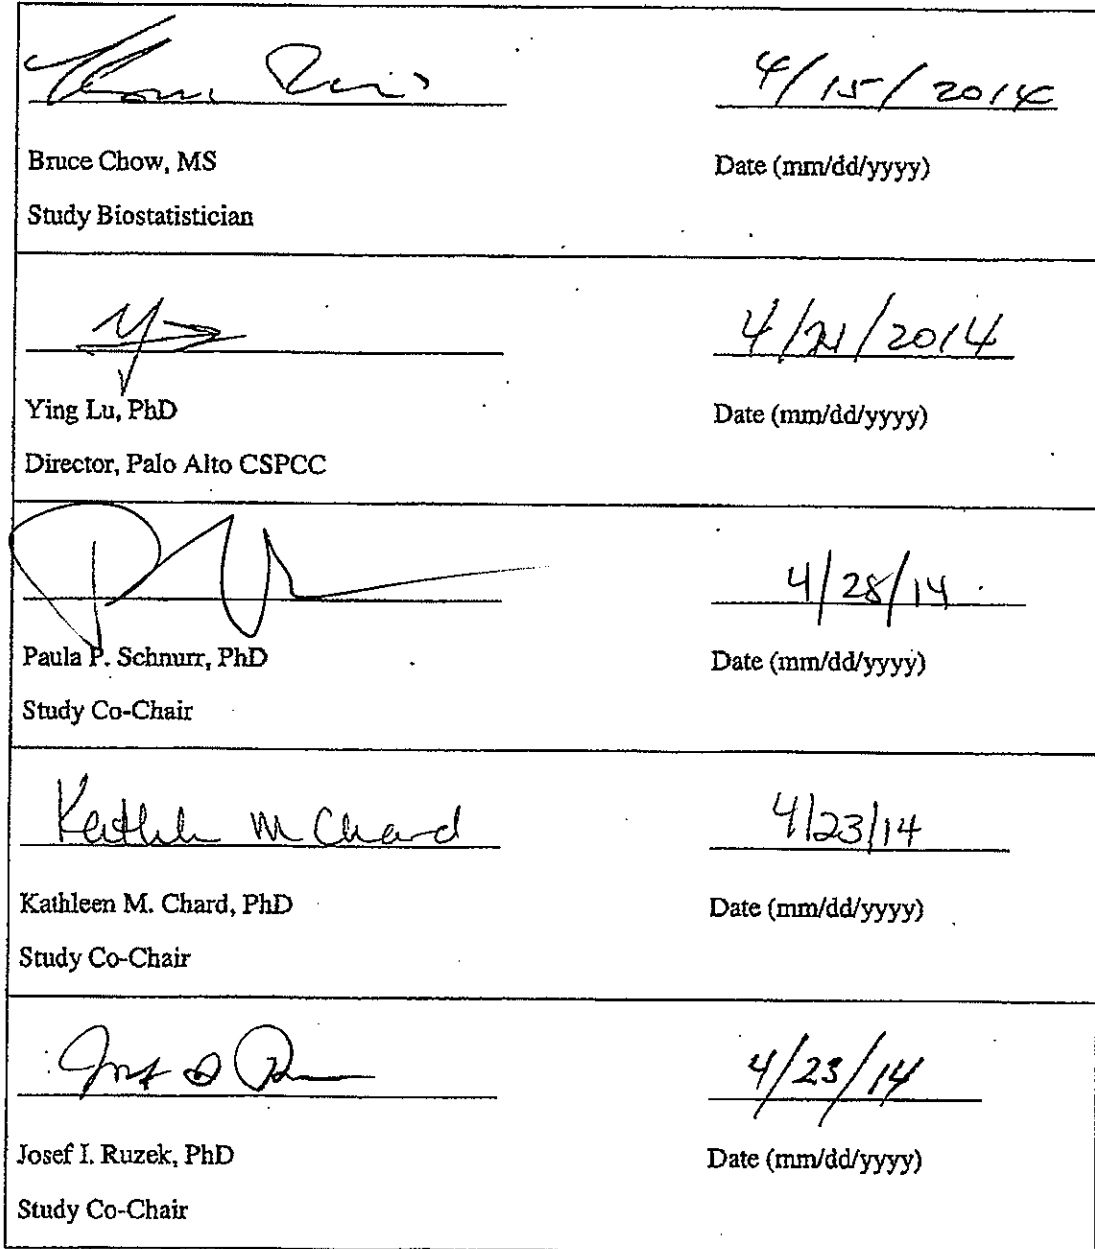 4/15/2014
Bruce Chow, MS Date (mm/dd/yyyy)
Study Biostatistician
4/21/2014
Ying Lu, PhD Date (mm/dd/yyyy)
Director, Palo Alto CSPCC
4/28/14
Paula P. Schnurr, PhD Date (mm/dd/yyyy)
Study Co-Chair
Kathleen M Chard 4/23/14
Kathleen M. Chard, PhD Date (mm/dd/yyyy)
Study Co-Chair
4/23/14
Josef I. Ruzek, PhD Date (mm/dd/yyyy)
Study Co-Chair